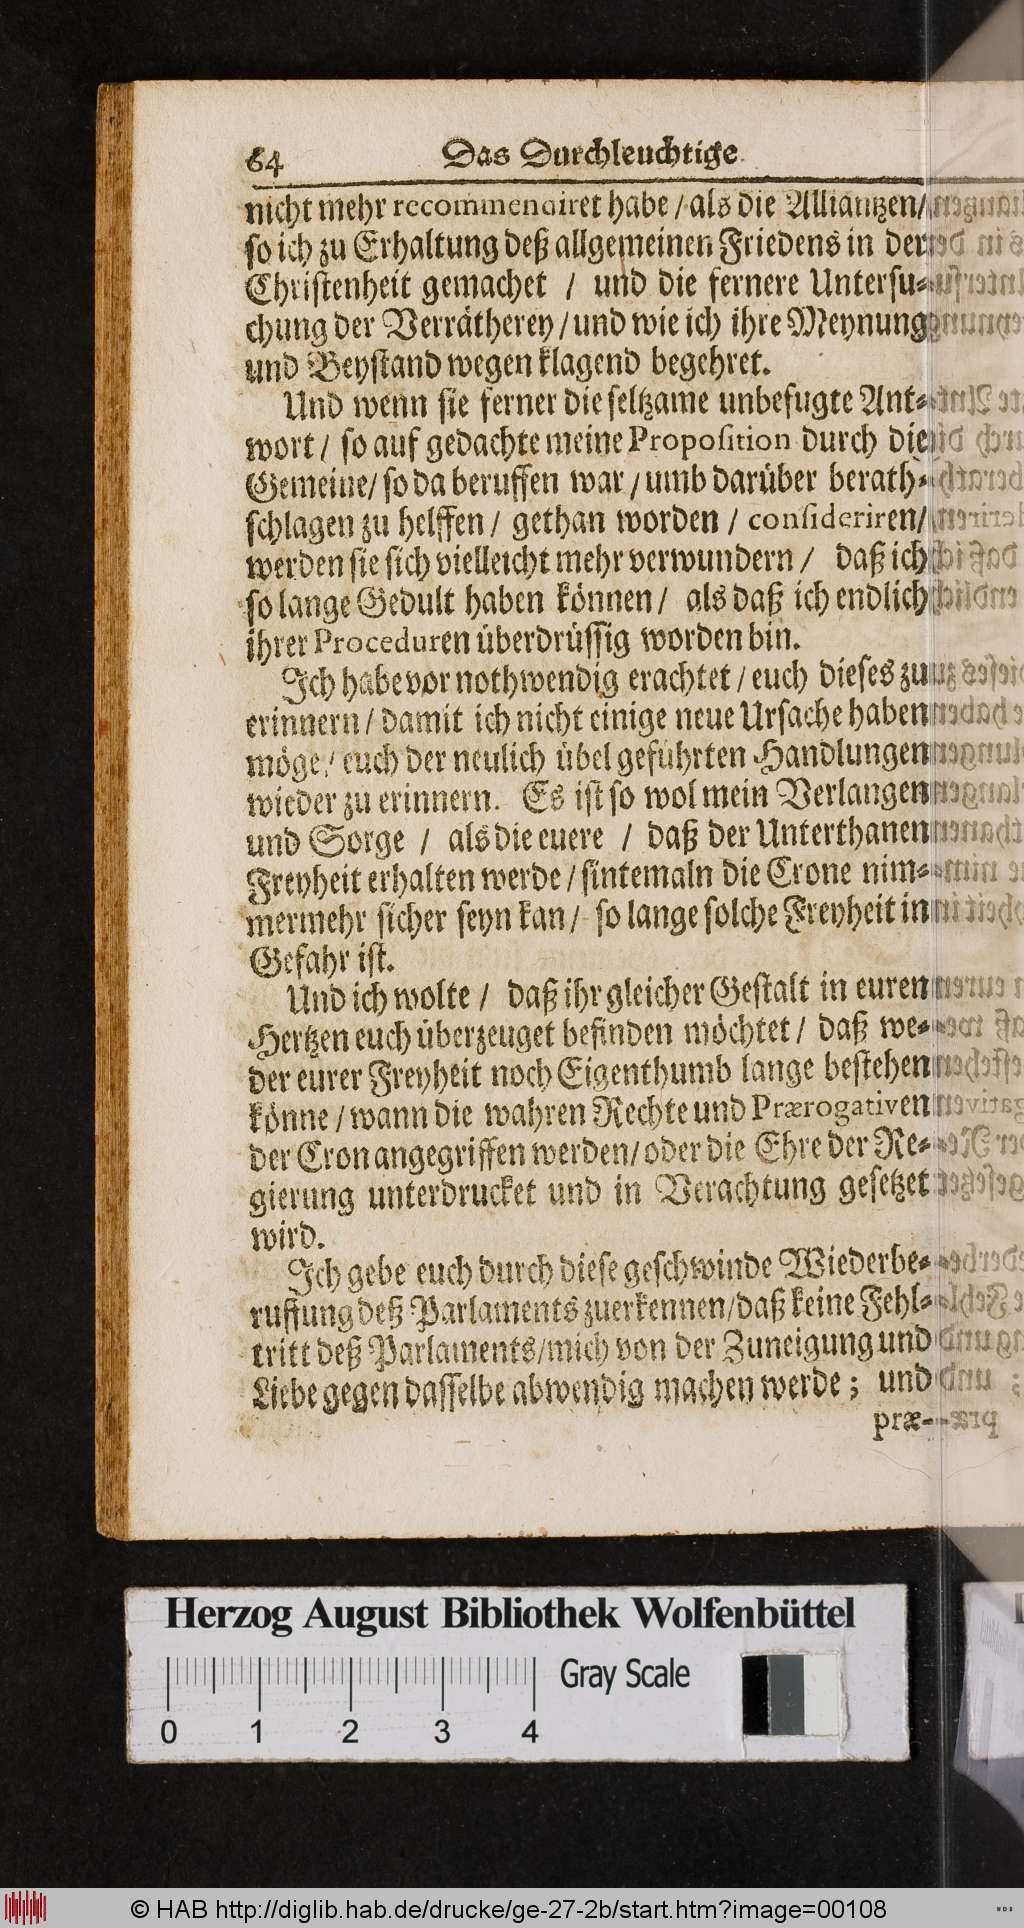 64 Das Durchleuchtige
nicht mehr recommendiret habe / als die Alliantzen/
so ich zu Erhaltung deß allgemeinen Friedens in der
Christenheit gemachet / und die fernere Untersu-
chung der Verrätherey / und wie ich ihre Meynung
und Beystand wegen klagend begehret.
Und wenn sie ferner die seltzame unbefugte Ant-
wort / so auf gedachte meine Proposition durch die
Gemeine/ so da beruffen war / umb darüber berath-
schlagen zu helffen / gethan worden / consideriren/
werden sie sich vielleicht mehr verwundern / daß ich
so lange Gedult haben können / als daß ich endlich
ihrer Proceduren überdrüssig worden bin.
Ich habe vor nothwendig erachtet / euch dieses zu
erinnern / damit ich nicht einige neue Ursache haben
möge / euch der neulich übel geführten Handlungen
wieder zu erinnern. Es ist so wol mein Verlangen
und Sorge / als die euere / daß der Unterthanen
Freyheit erhalten werde / sintemaln die Crone nim-
mermehr sicher seyn kan / so lange solche Freyheit in
Gefahr ist.
Und ich wolte / daß ihr gleicher Gestalt in euren
Hertzen euch überzeuget befinden möchtet / daß we-
der eurer Freyheit noch Eigenthumb lange bestehen
könne / wann die wahren Rechte und Prærogativen
der Cron angegriffen werden/ oder die Ehre der Re-
gierung unterdrucket und in Verachtung gesetzet
wird.
Ich gebe euch durch diese geschwinde Wiederbe-
ruffung deß Parlaments zuerkennen/daß keine Fehl-
tritt deß Parlaments/mich von der Zuneigung und
Liebe gegen dasselbe abwendig machen werde ; und
præ-
Herzog August Bibliothek Wolfenbüttel
Gray Scale
0 1 2 3 4
© HAB http://diglib.hab.de/drucke/ge-27-2b/start.htm?image=00108